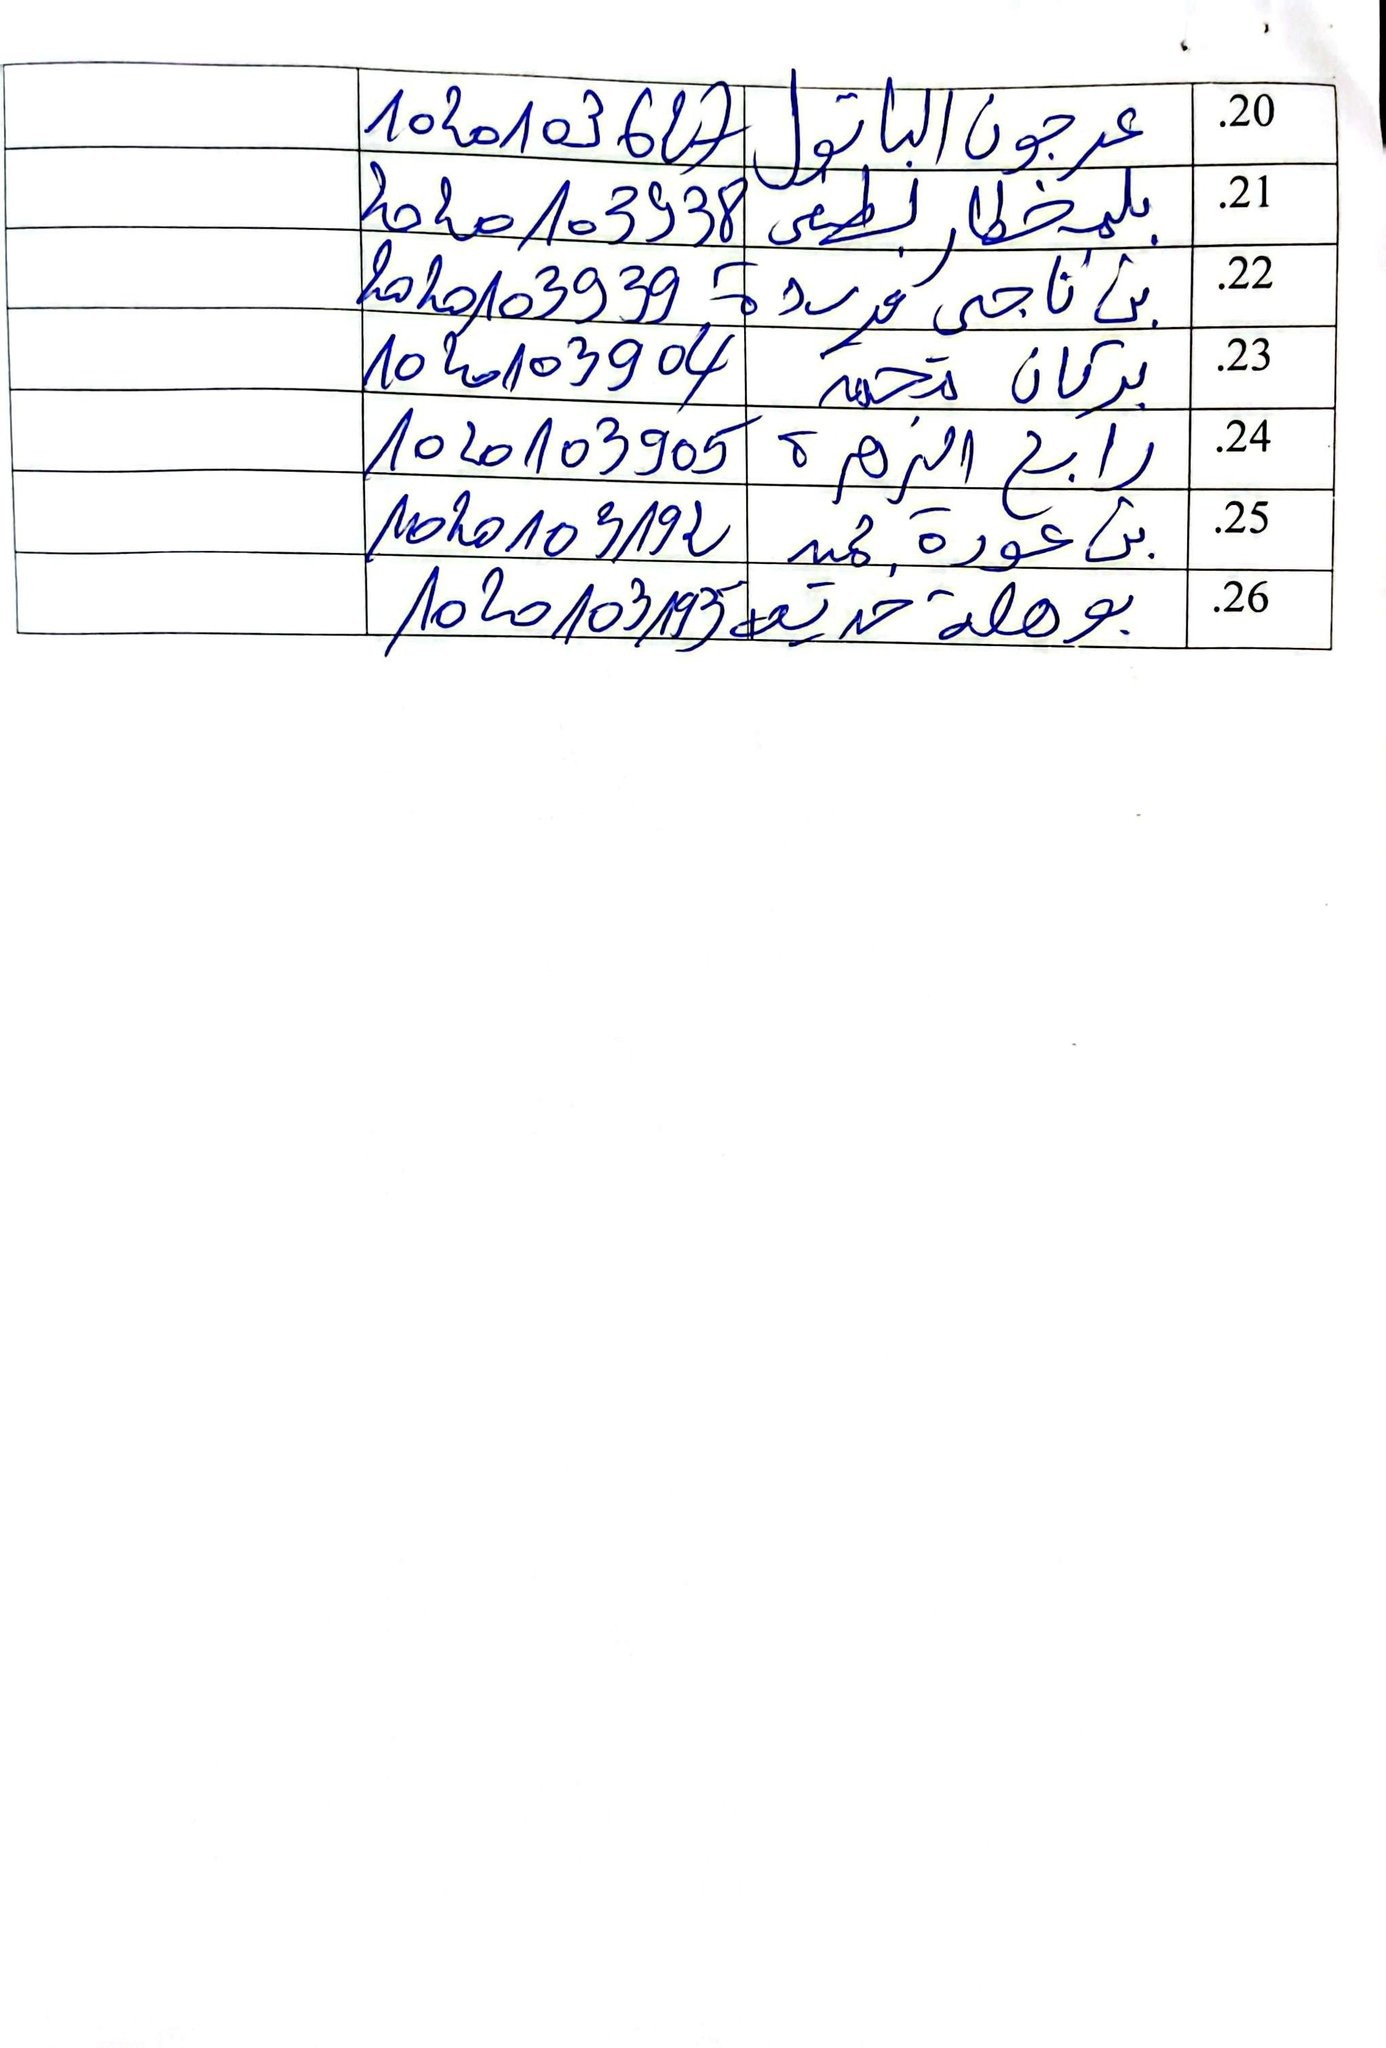 20. عرجون الباتول 1020103627
21. بلمخطار لطفي 2020103938
22. بن ناجي فريدة 2020103939
23. بركان 1020103904
24. رابح الزهرة 1020103905
25. بن عودة 1020103192
26. بوهلة خديجة 1020103195